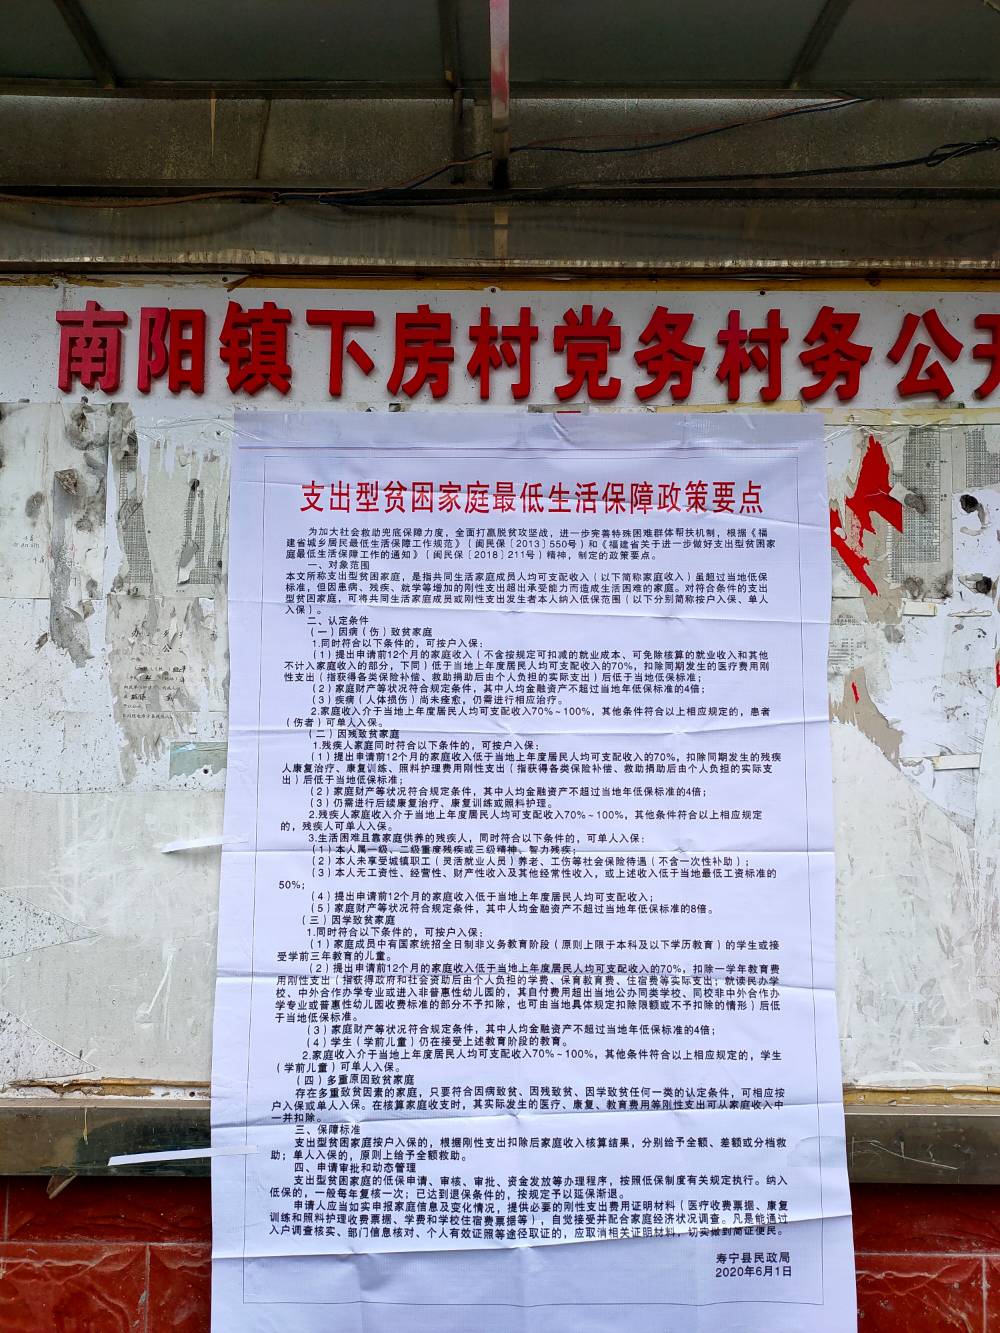 南阳镇下房村党务村务公开
支出型贫困家庭最低生活保障政策要点
为加大社会救助兜底保障力度，全面打赢脱贫攻坚战，进一步完善特殊困难群体帮扶机制，根据《福
建省城乡居民最低生活保障工作规范》（闽民保〔2013〕550号）和《福建省关于进一步做好支出型贫困家
庭最低生活保障工作的通知》（闽民保〔2018〕211号）精神，制定的政策要点。
一、对象范围
本文所称支出型贫困家庭，是指共同生活家庭成员人均可支配收入（以下简称家庭收入）虽超过当地低保
标准，但因患病、残疾、就学等增加的刚性支出超出承受能力而造成生活困难的家庭。对符合条件的支出
型贫困家庭，可将共同生活家庭成员或刚性支出发生者本人纳入低保范围（以下分别简称按户入保、单人
入保）。
二、认定条件
（一）因病（伤）致贫家庭
1.同时符合以下条件的，可按户入保：
（1）提出申请前12个月的家庭收入（不含按规定可扣减的就业成本、可免除核算的就业收入和其他
不计入家庭收入的部分，下同）低于当地上年度居民人均可支配收入的70%，扣除同期发生的医疗费用刚
性支出（指获得各类保险补偿、救助捐助后由个人负担的实际支出）后低于当地低保标准；
（2）家庭财产等状况符合规定条件，其中人均金融资产不超过当地年低保标准的4倍；
（3）疾病（人体损伤）尚未痊愈，仍需进行相应治疗。
2.家庭收入介于当地上年度居民人均可支配收入70%~100%，其他条件符合以上相应规定的，患者
（伤者）可单人入保。
（二）因残致贫家庭
1.残疾人家庭同时符合以下条件的，可按户入保：
（1）提出申请前12个月的家庭收入低于当地上年度居民人均可支配收入的70%，扣除同期发生的残疾
人康复治疗、康复训练、照料护理费用刚性支出（指获得各类保险补偿、救助捐助后由个人负担的实际支
出）后低于当地低保标准；
（2）家庭财产等状况符合规定条件，其中人均金融资产不超过当地年低保标准的4倍；
（3）仍需进行后续康复治疗、康复训练或照料护理。
2.残疾人家庭收入介于当地上年度居民人均可支配收入70%~100%，其他条件符合以上相应规定
的，残疾人可单人入保。
3.生活困难且靠家庭供养的残疾人，同时符合以下条件的，可单人入保：
（1）本人属一级、二级重度残疾或三级精神、智力残疾；
（2）本人未享受城镇职工（灵活就业人员）养老、工伤等社会保险待遇（不含一次性补助）；
（3）本人无工资性、经营性、财产性收入及其他经常性收入，或上述收入低于当地最低工资标准的
50%；
（4）提出申请前12个月的家庭收入低于当地上年度居民人均可支配收入；
（5）家庭财产等状况符合规定条件，其中人均金融资产不超过当地年低保标准的8倍。
（三）因学致贫家庭
1.同时符合以下条件的，可按户入保：
（1）家庭成员中有国家统招全日制非义务教育阶段（原则上限于本科及以下学历教育）的学生或接
受学前三年教育的儿童。
（2）提出申请前12个月的家庭收入低于当地上年度居民人均可支配收入的70%，扣除一学年教育费
用刚性支出（指获得政府和社会资助后由个人负担的学费、保育教育费、住宿费等实际支出；就读民办学
校、中外合作办学专业或进入非普惠性幼儿园的，其自付费用超出当地公办同类学校、同校非中外合作办
学专业或普惠性幼儿园收费标准的部分不予扣除，也可由当地具体规定扣除限额或不予扣除的情形）后低
于当地低保标准。
（3）家庭财产等状况符合规定条件，其中人均金融资产不超过当地年低保标准的4倍；
（4）学生（学前儿童）仍在接受上述教育阶段的教育。
2.家庭收入介于当地上年度居民人均可支配收入70%~100%，其他条件符合以上相应规定的，学生
（学前儿童）可单人入保。
（四）多重原因致贫家庭
存在多重致贫因素的家庭，只要符合因病致贫、因残致贫、因学致贫任何一类的认定条件，可相应按
户入保或单人入保。在核算家庭收支时，其实际发生的医疗、康复、教育费用等刚性支出可从家庭收入中
一并扣除。
三、保障标准
支出型贫困家庭按户入保的，根据刚性支出扣除后家庭收入核算结果，分别给予全额、差额或分档救
助；单人入保的，原则上给予全额救助。
四、申请审批和动态管理
支出型贫困家庭的低保申请、审核、审批、资金发放等办理程序，按照低保制度有关规定执行。纳入
低保的，一般每年复核一次；已达到退保条件的，按规定予以延保渐退。
申请人应当如实申报家庭信息及变化情况，提供必要的刚性支出费用证明材料（医疗收费票据、康复
训练和照料护理收费票据、学费和学校住宿费票据等），自觉接受并配合家庭经济状况调查。凡是能通过
入户调查核实、部门信息核对、个人有效证照等途径取证的，应取消相关证明材料，切实做到简证便民。
寿宁县民政局
2020年6月1日